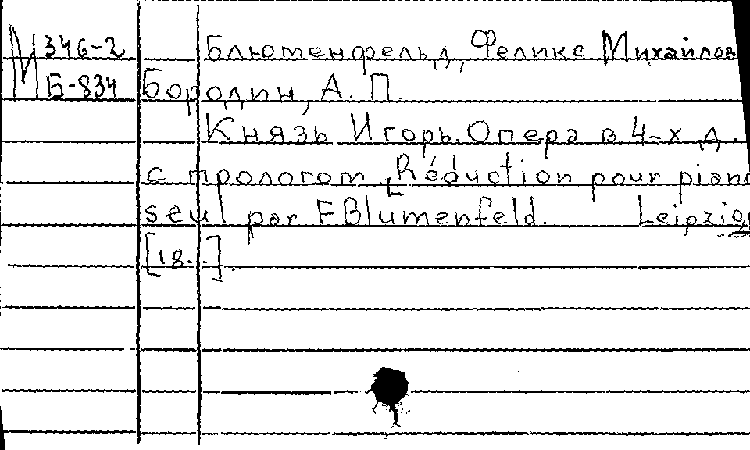 М 346-2 Блюменфельд, Феликс Михайлов
Б-834 Бородин, А. П.
Князь Игорь. Опера в 4-х д.
с прологом. [Réduction pour piano
seul par F. Blumenfeld. Leipzig
[18..]